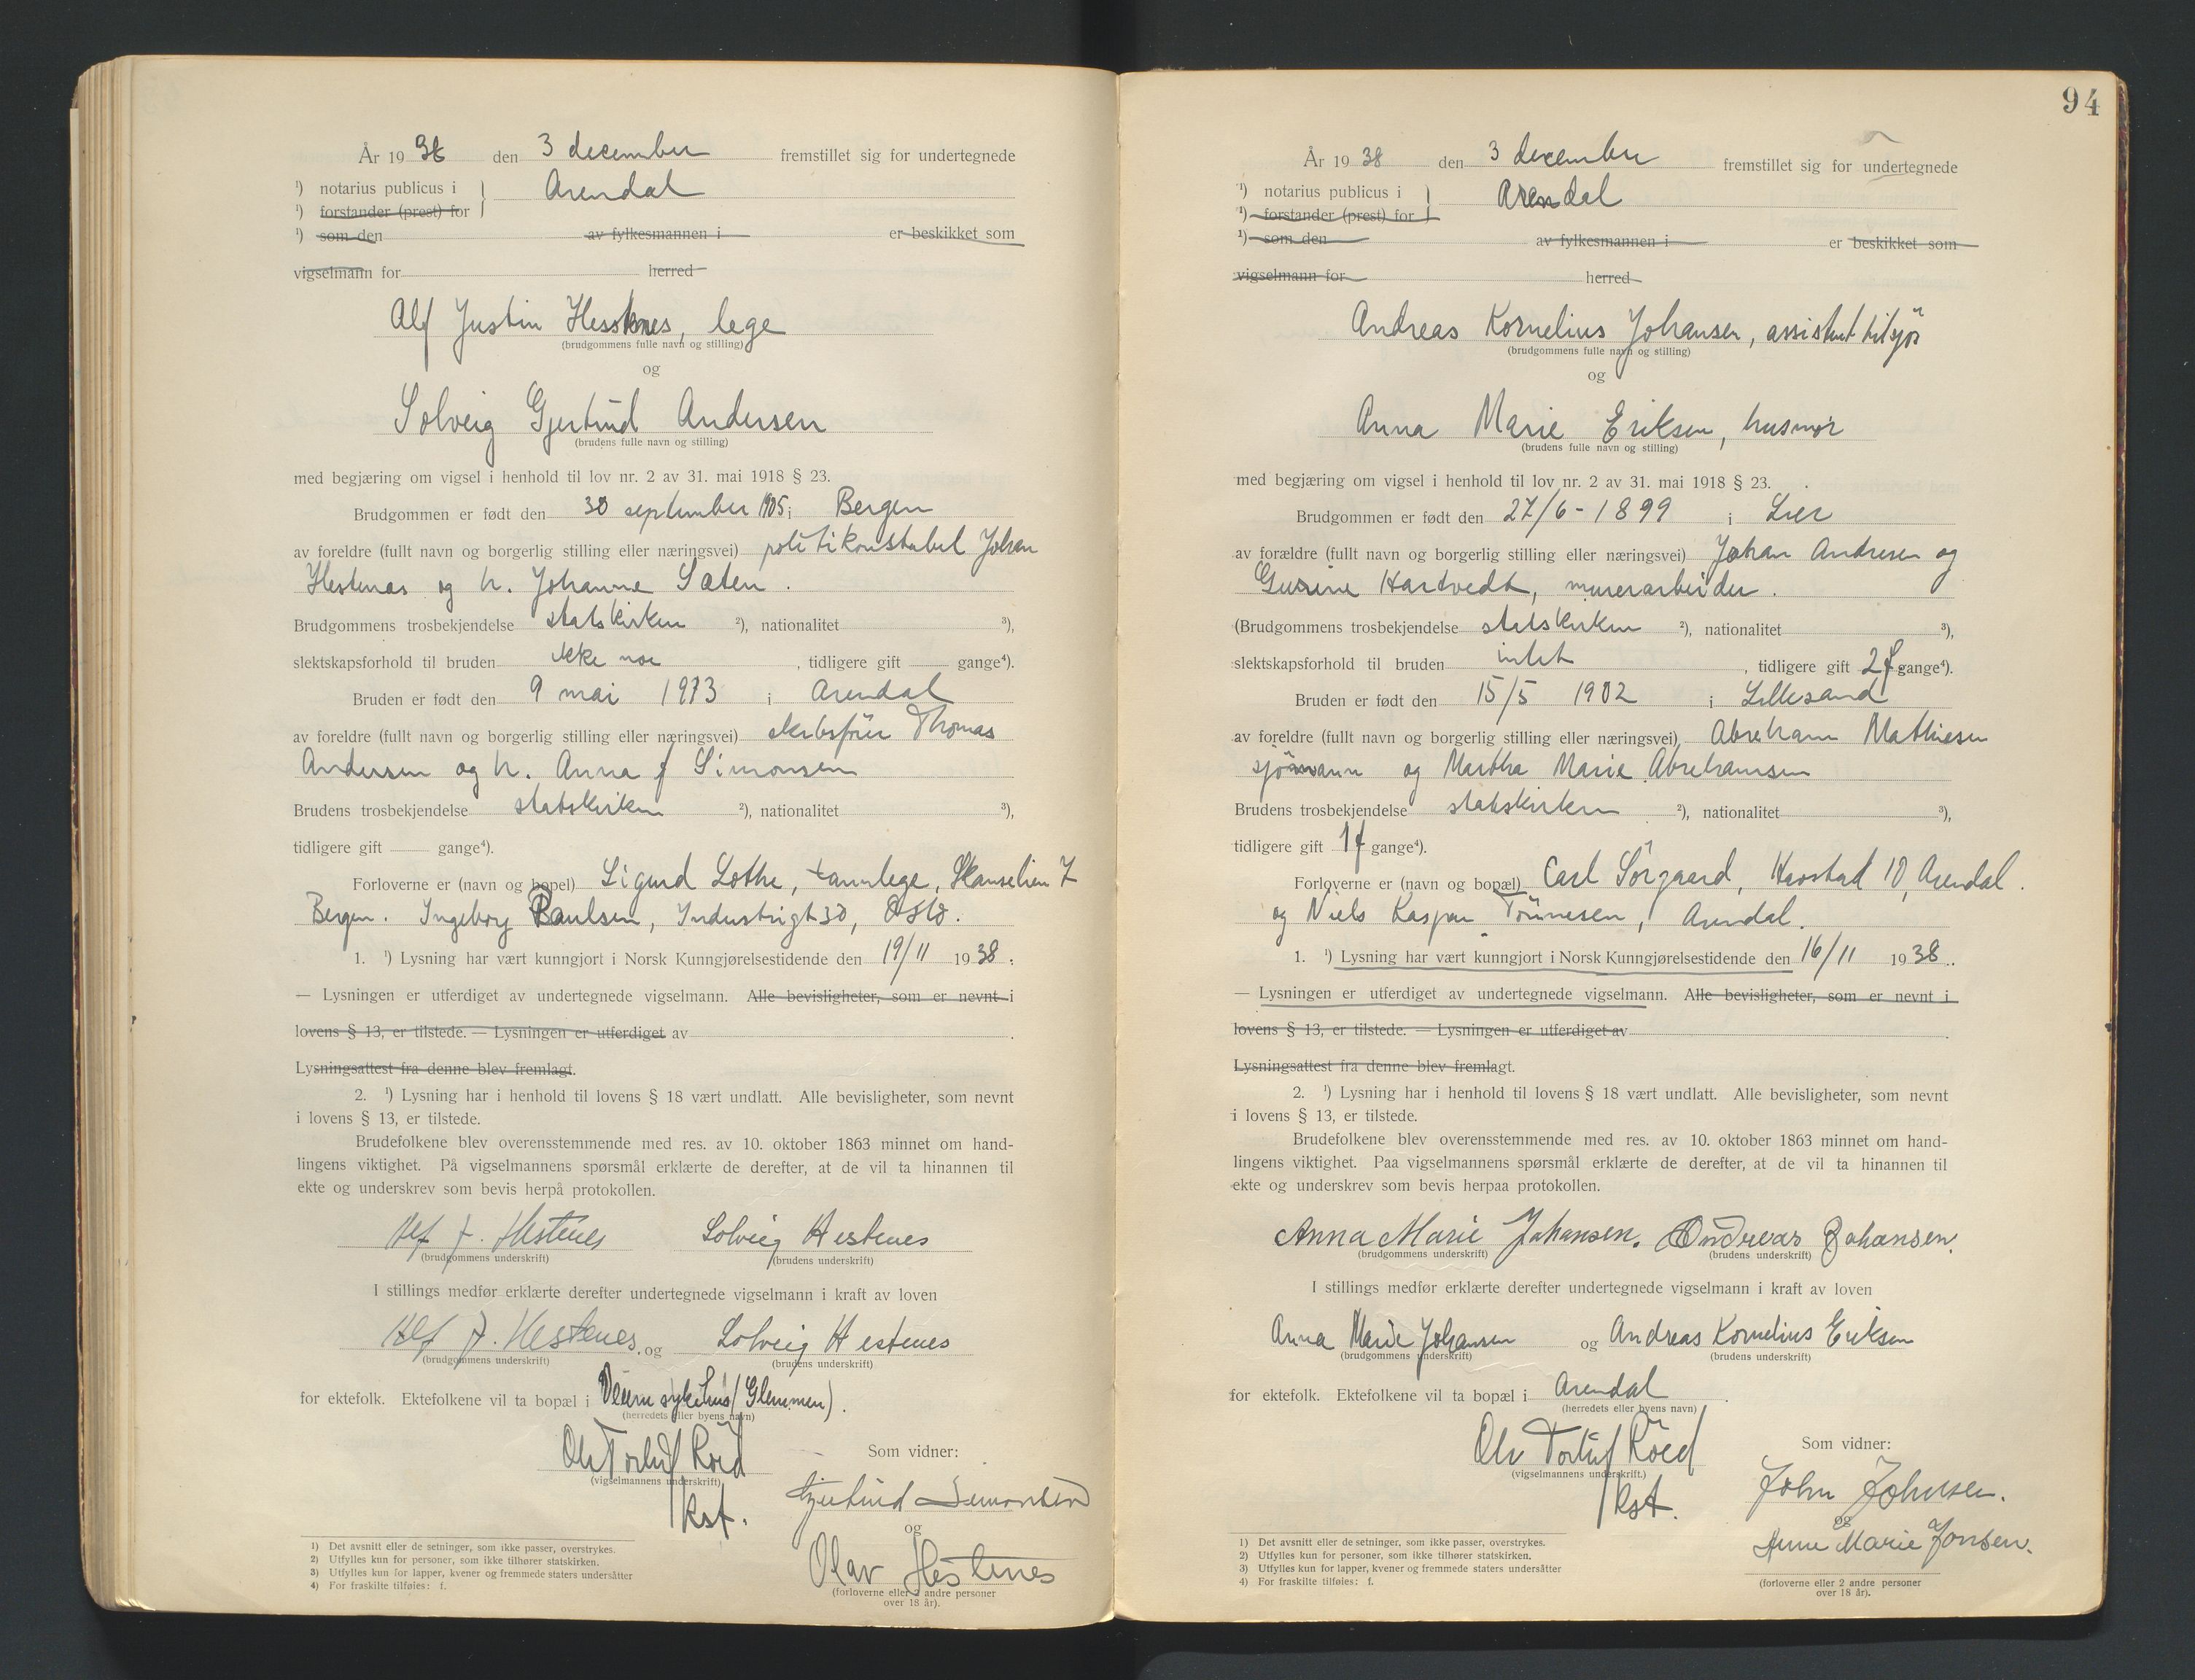 År 19 38 den 3 december fremstillet sig for undertegnede
¹) notarius publicus i } Arendal
¹) forstander (prest) for
¹) som den av fylkesmannen i er beskikket som
vigselmann for herred
Alf Justin Hestenes, lege
(brudgommens fulle navn og stilling)
og
Solveig Gjertrud Andersen
(brudens fulle navn og stilling)
med begjæring om vigsel i henhold til lov nr. 2 av 31. mai 1918 § 23.
Brudgommen er født den 30 september 1905 i Bergen
av foreldre (fullt navn og borgerlig stilling eller næringsvei) politikonstabel Johan
Hestenas og h. Johanne Sæten.
Brudgommens trosbekjendelse statskirken ²), nationalitet ³),
slektskapsforhold til bruden ikke noe, tidligere gift gange⁴).
Bruden er født den 9 mai 1913 i Arendal
av foreldre (fullt navn og borgerlig stilling eller næringsvei) skibsfører Thomas
Andersen og h. Anna f Simonsen
Brudens trosbekjendelse statskirken ²), nationalitet ³),
tidligere gift gange⁴).
Forloverne er (navn og bopel) Sigurd Lothe, tannlege, Skanselien 7
Bergen. Ingeborg Paulsen, Industrigt 30, Oslo.
1. ¹) Lysning har vært kunngjort i Norsk Kunngjørelsestidende den 19/11 19 38.
— Lysningen er utferdiget av undertegnede vigselmann. Alle bevisligheter, som er nevnt i
lovens § 13, er tilstede. — Lysningen er utferdiget av .
Lysningsattest fra denne blev fremlagt.
2. ¹) Lysning har i henhold til lovens § 18 vært undlatt. Alle bevisligheter, som nevnt
i lovens § 13, er tilstede.
Brudefolkene blev overensstemmende med res. av 10. oktober 1863 minnet om hand-
lingens viktighet. På vigselmannens spørsmål erklærte de derefter, at de vil ta hinannen til
ekte og underskrev som bevis herpå protokollen.
Alf J. Hestenes Solveig Hestenes
(brudgommens underskrift) (brudens underskrift)
I stillings medfør erklærte derefter undertegnede vigselmann i kraft av loven
Alf J. Hestenes. og Solveig Hestenes
(brudgommens underskrift) (brudens underskrift)
for ektefolk. Ektefolkene vil ta bopæl i Veum sykehus (Glemmen).
(herredets eller byens navn)
Olv Torleif Röed
(vigselmannens underskrift)
kst.
Som vidner:
Gjertrud Simonsen
og
Olav Hestenes
(forloverne eller 2 andre personer
over 18 år).
1) Det avsnitt eller de setninger, som ikke passer, overstrykes.
2) Utfylles kun for personer, som ikke tilhører statskirken.
3) Utfylles kun for lapper, kvener og fremmede staters undersåtter
4) For fraskilte tilføies: f.
94
År 19 38 den 3 december fremstillet sig for undertegnede
¹) notarius publicus i } Arendal
¹) forstander (prest) for
¹) som den av fylkesmannen i er beskikket som
vigselmann for herred
Andreas Kornelius Johansen, assistent tilsjøs
(brudgommens fulle navn og stilling)
og
Anna Marie Eriksen, husmor
(brudens fulle navn og stilling)
med begjæring om vigsel i henhold til lov nr. 2 av 31. mai 1918 § 23.
Brudgommen er født den 27/6 - 1899 i Lier
av forældre (fullt navn og borgerlig stilling eller næringsvei) Johan Andresen og
Gusine Hartvedt, murerarbeider.
(Brudgommens trosbekjendelse statskirken ²), nationalitet ³),
slektskapsforhold til bruden intet, tidligere gift 2 f gange⁴).
Bruden er født den 15/5 1902 i Lillesand
av foreldre (fullt navn og borgerlig stilling eller næringsvei) Abreham Mathiesen
sjömann og Martha Marie Abrehamsen
Brudens trosbekjendelse statskirken ²), nationalitet ³),
tidligere gift 1 f gange⁴).
Forloverne er (navn og bopæl) Carl Sörgaard, Havstad 10, Arendal.
og Niels Kasper Tönnesen, Arendal.
1. ¹) Lysning har vært kunngjort i Norsk Kunngjørelsestidende den 16/11 19 38.
— Lysningen er utferdiget av undertegnede vigselmann. Alle bevisligheter, som er nevnt i
lovens § 13, er tilstede. — Lysningen er utferdiget av .
Lysningsattest fra denne blev fremlagt.
2. ¹) Lysning har i henhold til lovens § 18 vært undlatt. Alle bevisligheter, som nevnt
i lovens § 13, er tilstede.
Brudefolkene blev overensstemmende med res. av 10. oktober 1863 minnet om hand-
lingens viktighet. Paa vigselmannens spørsmål erklærte de derefter, at de vil ta hinannen til
ekte og underskrev som bevis herpaa protokollen.
Anna Marie Johansen. Andreas Johansen.
(brudgommens underskrift) (brudens underskrift)
I stillings medfør erklærte derefter undertegnede vigselmann i kraft av loven
Anna Marie Johansen og Andreas Kornelius Eriksen
(brudgommens underskrift) (brudens underskrift)
for ektefolk. Ektefolkene vil ta bopæl i Arendal.
(herredets eller byens navn)
Olv Torleif Röed
(vigselmannens underskrift.)
kst.
Som vidner:
John Johnsen.
og
Anne Marie Jonsen.
(forloverne eller 2 andre personer
over 18 år).
1) Det avsnitt eller de setninger, som ikke passer, overstrykes.
2) Utfylles kun for personer, som ikke tilhører statskirken.
3) Utfylles kun for lapper, kvener og fremmede staters undersåtter
4) For fraskilte tilføies: f.